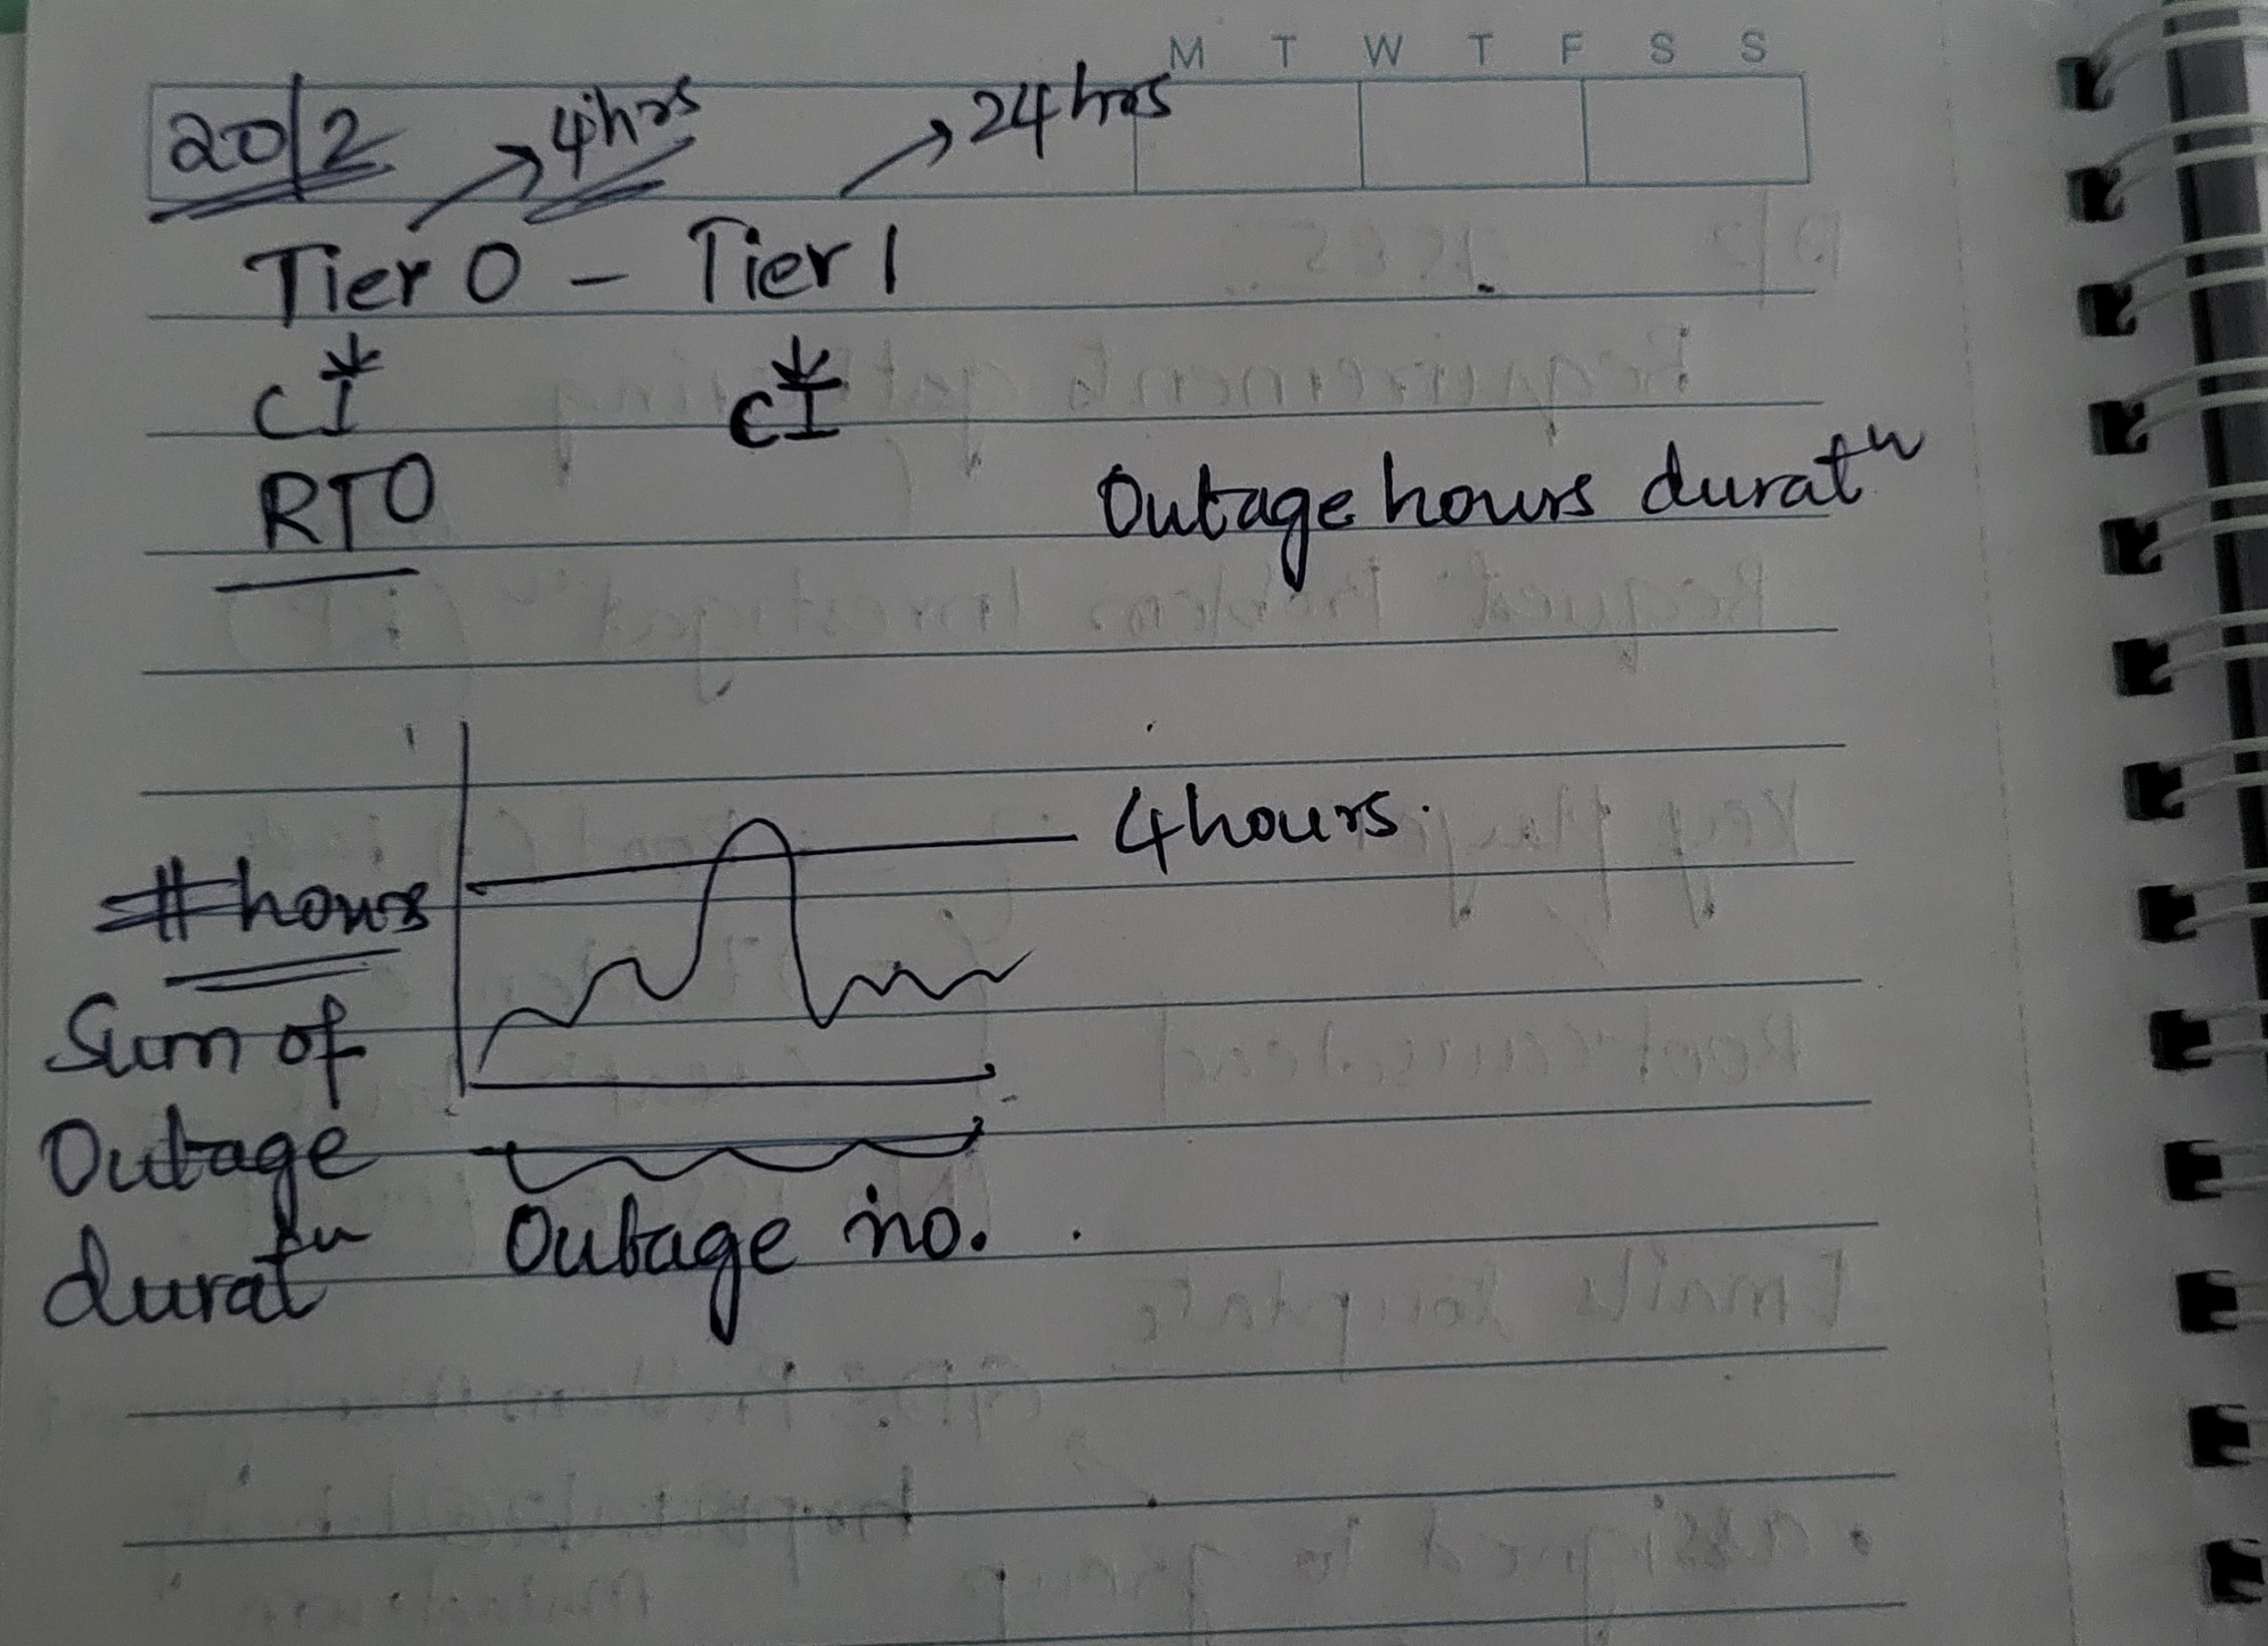 M T W T F S S
20/2 → 4hrs → 24hrs
Tier 0 - Tier 1
CI* CI*
RTO
Outage hours duratn
4hours.
#hours
Sum of
Outage
duratn
Outage no.